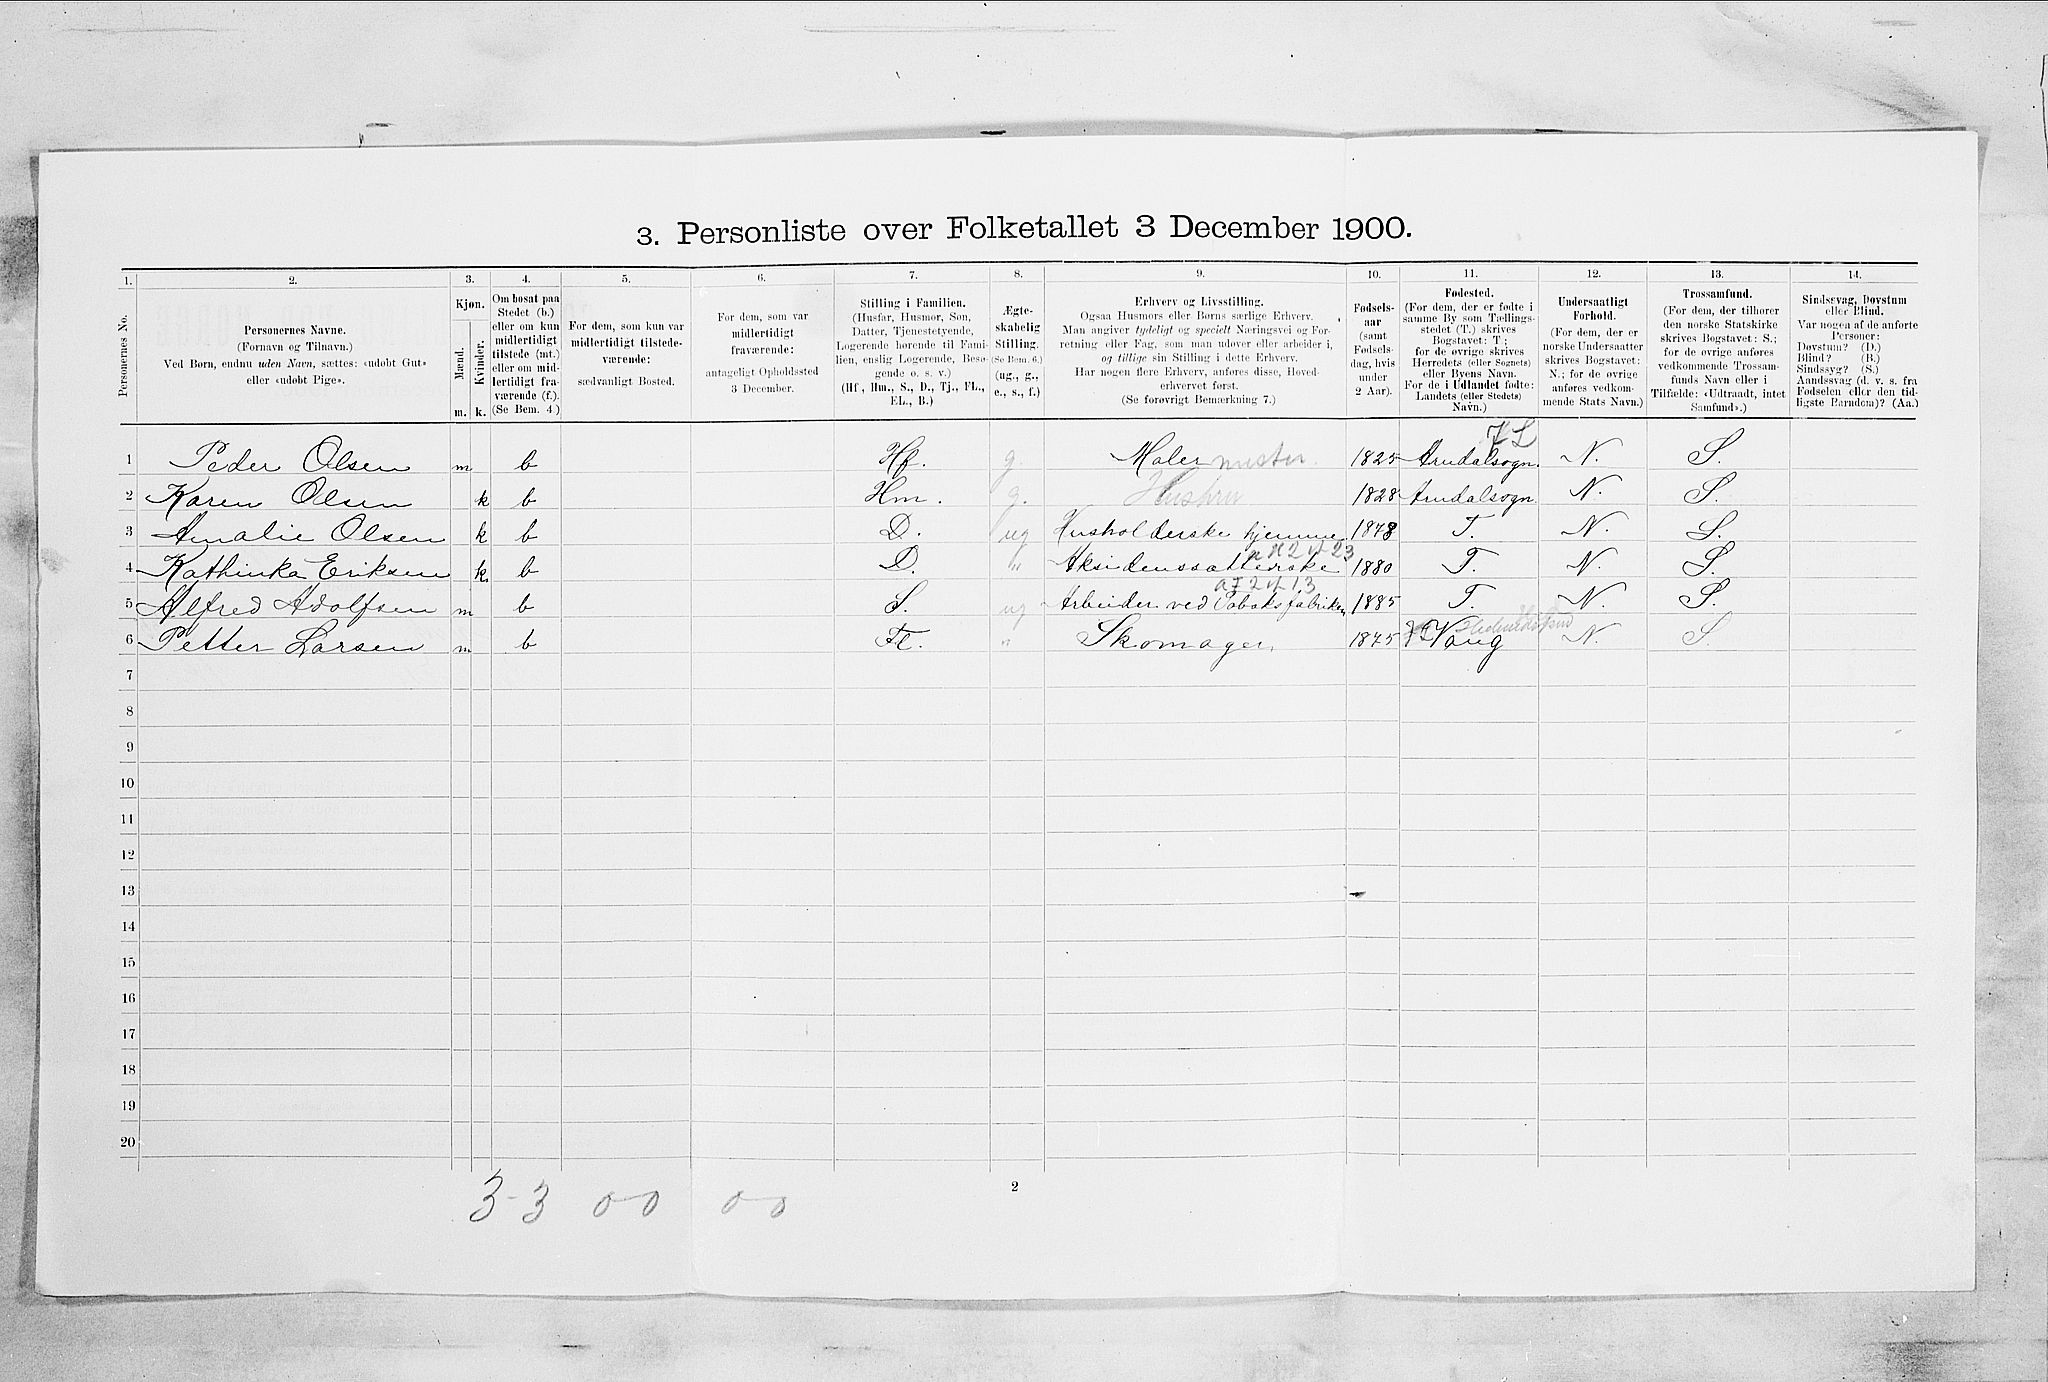 3. Personliste over Folketallet 3 December 1900.
1. 2. 3. 4. 5. 6. 7. 8. 9. 10. 11. 12. 13. 14.
Personernes No.
Personernes Navne.
(Fornavn og Tilnavn.)
Ved Børn, endnu uden Navn, sættes: «udøbt Gut»
eller «udøbt Pige».
Kjøn.
Mænd.
Kvinder.
m. k.
Om bosat paa
Stedet (b.)
eller om kun
midlertidigt
tilstede (mt.)
eller om mid-
lertidigt fra-
værende (f.).
(Se Bem. 4.)
For dem, som kun var
midlertidigt tilstede-
værende:
sædvanligt Bosted.
For dem, som var
midlertidigt
fraværende:
antageligt Opholdssted
3 December.
Stilling i Familien.
(Husfar, Husmor, Søn,
Datter, Tjenestetyende,
Logerende hørende til Fami-
lien, enslig Logerende, Besø-
gende o. s. v.)
(Hf., Hm., S., D., Tj., FL.,
EL., B.)
Ægte-
skabelig
Stilling.
(Se Bem. 6.)
(ug., g.,
e., s., f.)
Erhverv og Livsstilling.
Ogsaa Husmors eller Børns særlige Erhverv.
Man angiver tydeligt og specielt Næringsvei og For-
retning eller Fag, som man udøver eller arbeider i,
og tillige sin Stilling i dette Erhverv.
Har nogen flere Erhverv, anføres disse, Hoved-
erhvervet først.
(Se forøvrigt Bemærkning 7.)
Fødsels-
aar
(samt
Fødsels-
dag, hvis
under
2 Aar).
Fødested.
(For dem, der er fødte i
samme By som Tællings-
stedet (T.) skrives
Bogstavet: T;
for de øvrige skrives
Herredets (eller Sognets)
eller Byens Navn.
For de i Udlandet fødte:
Landets (eller Stedets)
Navn.)
Undersaatligt
Forhold.
(For dem, der er
norske Undersaatter
skrives Bogstavet:
N.; for de øvrige
anføres vedkom-
mende Stats Navn.)
Trossamfund.
(For dem, der tilhører
den norske Statskirke
skrives Bogstavet: S.;
for de øvrige anføres
vedkommende Trossam-
funds Navn eller i
Tilfælde: «Udtraadt, intet
Samfund».)
Sindssvag, Døvstum
eller Blind.
Var nogen af de anførte
Personer:
Døvstum? (D.)
Blind? (B.)
Sindssyg? (S.)
Aandssvag (d. v. s. fra
Fødselen eller den tid-
ligste Barndom)? (Aa.)
1 Peder Olsen m b Hf. g. Maler mester 1825 Arudalsogn. N. S.
2 Karen Olsen k b Hm. g. Hustru 1828 Arudalsogn N. S.
3 Amalie Olsen k b D. ug Husholderske hjemme 1878 T. N. S.
4 Kathinka Eriksen k. b D. " Aksidenssætterske 1880 T. N. S.
5 Alfred Adolfsen m b S. ug Arbeider ved Tobaksfabriken 1885 T. N. S.
6 Petter Larsen m b FL. " Skomager. 1875 Vang N. S.
7
8
9
10
11
12
13
14
15
16
17
18
19
20
3-3 0-0 0-0
2